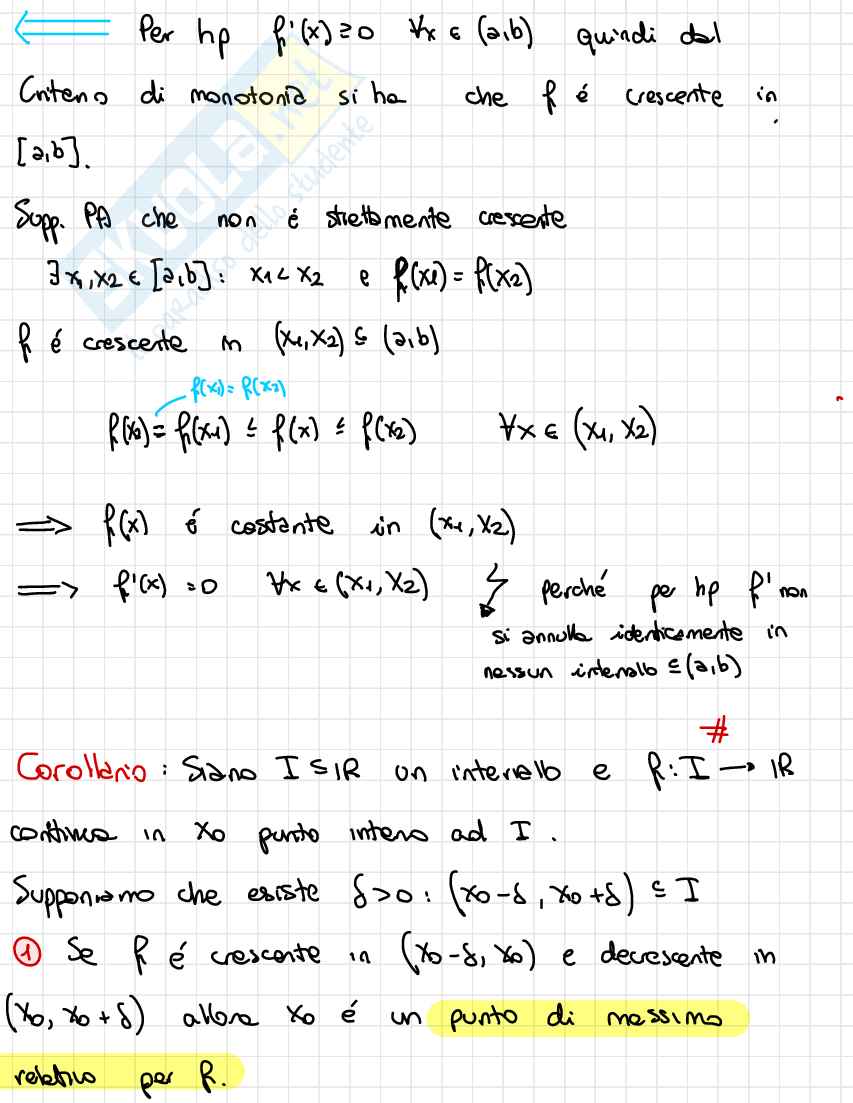 ⟸ Per hp f'(x) ≥ 0 ∀x ∈ (a,b) quindi dal
Criterio di monotonia si ha che f é crescente in
[a,b].
Supp. PA che non é strettamente crescente
∃ x₁, x₂ ∈ [a,b] : x₁ < x₂ e f(x₁) = f(x₂)
f é crescente in (x₁, x₂) ⊆ (a,b)
f(x₁) = f(x₂)
f(x₂) = f(x₁) ≤ f(x) ≤ f(x₂) ∀x ∈ (x₁, x₂)
⟹ f(x) é costante in (x₁, x₂)
⟹ f'(x) = 0 ∀x ∈ (x₁, x₂) ↯ perché per hp f' non
si annulla identicamente in
nessun intervallo ⊆ (a,b)
#
Corollario : Siano I ⊆ ℝ un intervallo e f : I → ℝ
continua in x₀ punto interno ad I .
Supponiamo che esiste δ > 0 : (x₀ - δ , x₀ + δ) ⊆ I
① Se f é crescente in (x₀ - δ, x₀) e decrescente in
(x₀, x₀ + δ) allora x₀ é un punto di massimo
relativo per f.
SKUOLA.net
il paradiso dello studente